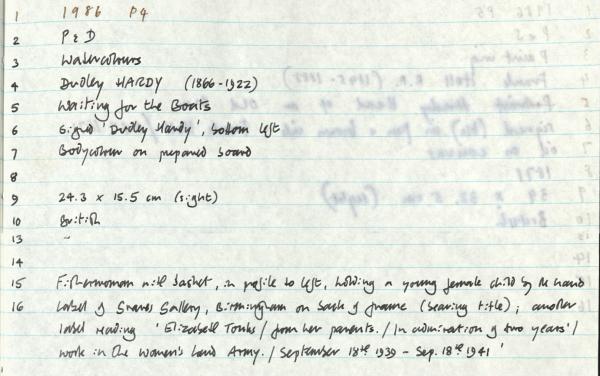 1 1986 P4
2 P & D
3 Watercolours
4 Dudley HARDY (1866-1922)
5 Waiting for the Boats
6 Signed 'Dudley Hardy', bottom left
7 Bodycolour on prepared board
8
9 24.3 x 15.5 cm (sight)
10 British
13 -
14
15 Fisherwoman with basket, in profile to left, holding a young female child by the hand
16 Label of Graves Gallery, Birmingham on back of frame (bearing title); another
label reading 'Elizabeth Tonks / from her parents. / In admiration of two years' /
work in the Women's Land Army. / September 18th 1939 - Sep. 18th 1941'